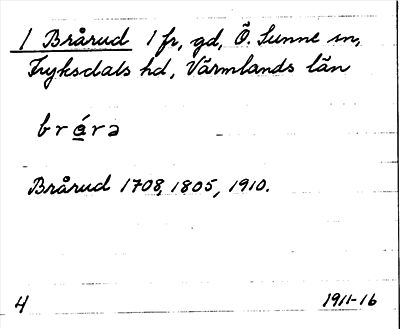 1 Brårud 1 fr, gd, Ö. Sunne sn,
Fryksdals hd, Värmlands län
brá̲rə
Brårud 1708, 1805, 1910.
4 1911-16